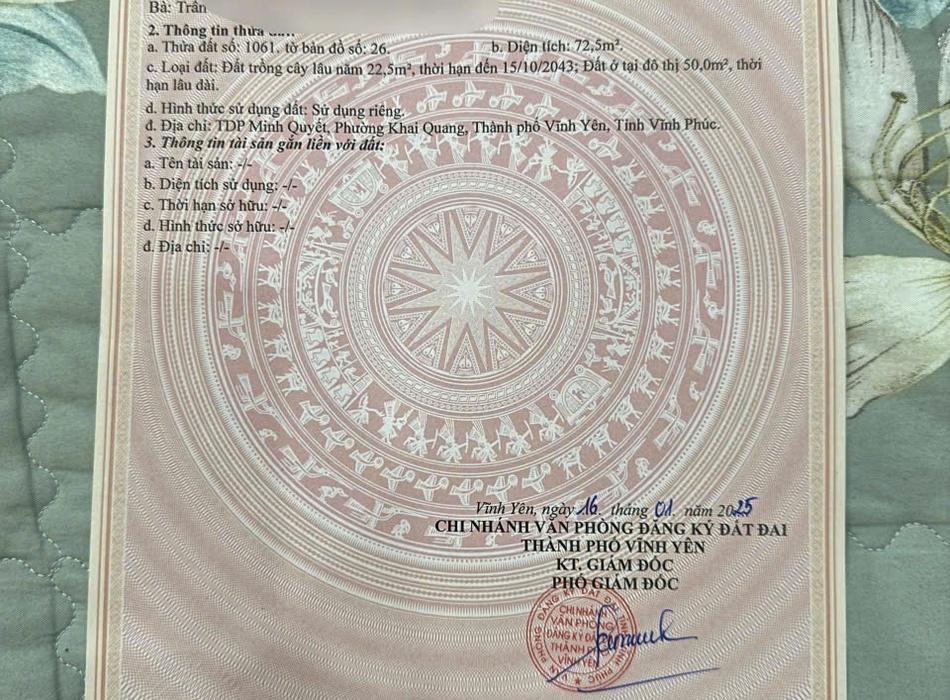 Bà: Trần
2. Thông tin thửa
a. Thửa đất số: 1061, tờ bản đồ số: 26. b. Diện tích: 72,5m².
c. Loại đất: Đất trồng cây lâu năm 22,5m², thời hạn đến 15/10/2043; Đất ở tại đô thị 50,0m², thời
hạn lâu dài.
d. Hình thức sử dụng đất: Sử dụng riêng.
đ. Địa chỉ: TDP Minh Quyết, Phường Khai Quang, Thành phố Vĩnh Yên, Tỉnh Vĩnh Phúc.
3. Thông tin tài sản gắn liền với đất:
a. Tên tài sản: -/-
b. Diện tích sử dụng: -/-
c. Thời hạn sở hữu: -/-
d. Hình thức sở hữu: -/-
đ. Địa chỉ: -/-
Vĩnh Yên, ngày 16 tháng 01 năm 2025
CHI NHÁNH VĂN PHÒNG ĐĂNG KÝ ĐẤT ĐAI
THÀNH PHỐ VĨNH YÊN
KT. GIÁM ĐỐC
PHÓ GIÁM ĐỐC
VĂN PHÒNG ĐĂNG KÝ ĐẤT ĐAI TỈNH VĨNH PHÚC
CHI NHÁNH
VĂN PHÒNG
ĐĂNG KÝ ĐẤT
THÀNH PHỐ
VĨNH YÊN